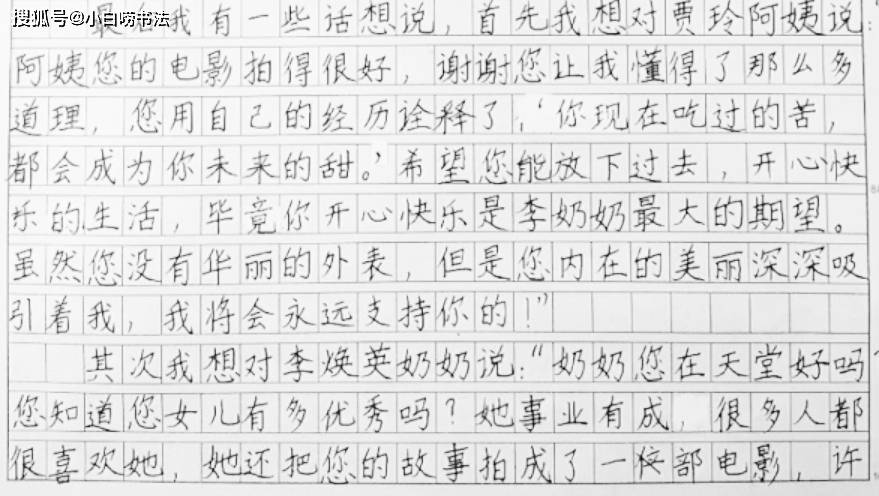 搜狐号@小白唠书法
最后我有一些话想说，首先我想对贾玲阿姨说：
阿姨您的电影拍得很好，谢谢您让我懂得了那么多
道理，您用自己的经历诠释了，‘你现在吃过的苦，
都会成为你未来的甜。’希望您能放下过去，开心快
乐的生活，毕竟你开心快乐是李奶奶最大的期望。
虽然您没有华丽的外表，但是您内在的美丽深深吸
引着我，我将会永远支持你的！”
其次我想对李焕英奶奶说：“奶奶您在天堂好吗
您知道您女儿有多优秀吗？她事业有成，很多人都
很喜欢她，她还把您的故事拍成了一部电影，许